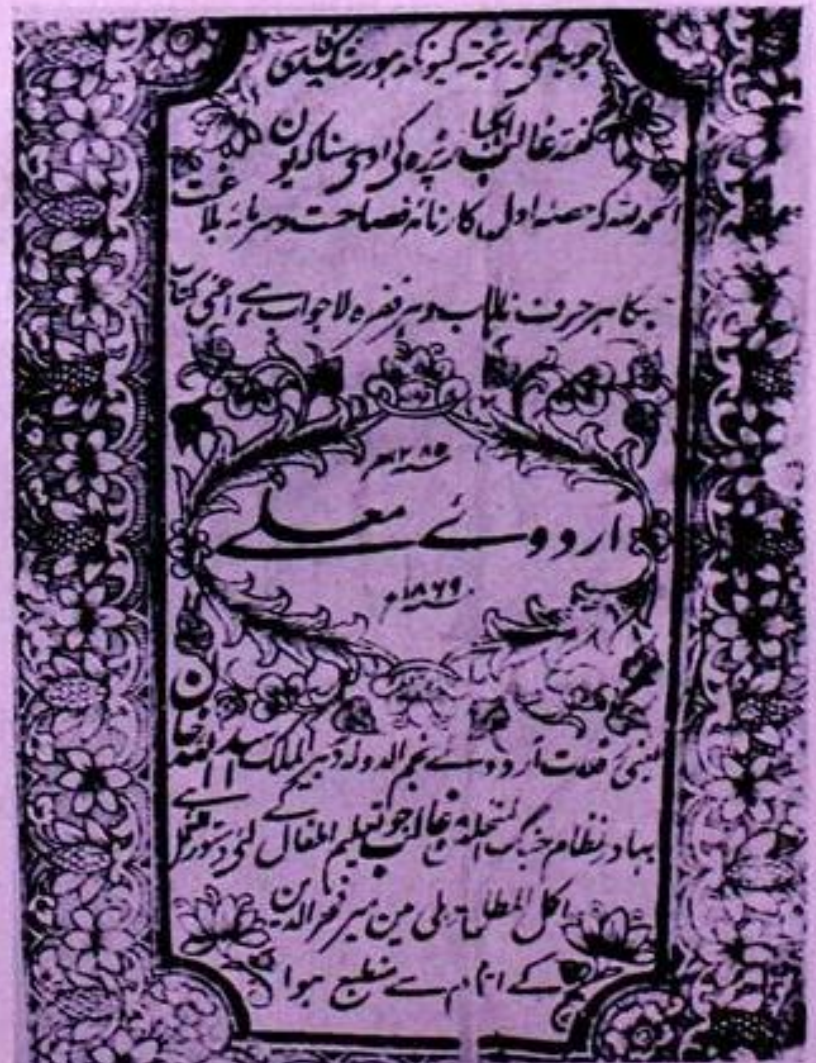 جو یہ کہی کہ ریختہ کیونکہ ہو رشک فارسی
گفتۂ غالب ایکبار پڑہ کی اوسی سنا کہ یون
الحمد للہ کہ حصہ اول کارنامۂ فصاحت و سرمایۂ بلاغت
جسکا ہر حرف نایاب و ہر فقرہ لاجواب ہے اعنی کتاب
سنہ ۱۲۸۵ھ
اردوئے معلے
سنہ ۱۸۶۹ء
اردوے نجم الدولہ دبیر الملک اسد اللہ خان
بہادر نظام جنگ المتخلص بہ غالب جو تعلیم اطفال کے لئی دستور العمل ہے
اکمل المطابع دہلی مین میر فخر الدین
کے اہتمام سے منطبع ہوا